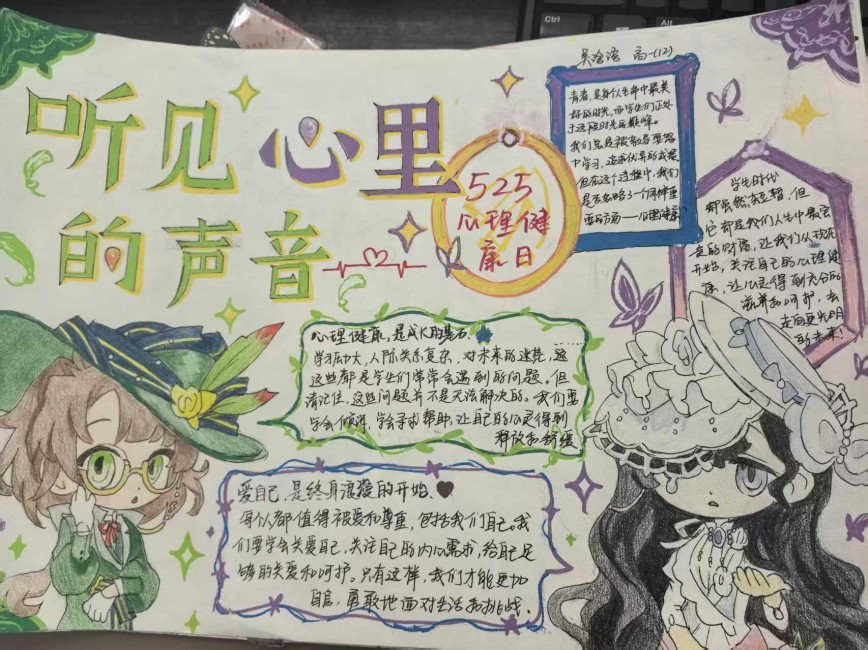 Ctrl
Alt
高一(12)
听见心里
的声音
525
心理健
康日
青春，是每个人生命中最美
好的时光，而学生们正处
于这段时光的巅峰。
我们总是被教导要努力
中学习，追求优异的成绩
但在这个过程中，我们
是否忽略了一个同样重
要的方面——心理健康
学生时代
都虽然短暂，但
它却是我们人生中最宝
贵的时光，让我们从现在
开始，关注自己的心理健
康，让心灵得到充分的
滋养和呵护，去
走向更光明
的未来！
心理健康，是成长的基石.
学习压力大，人际关系复杂，对未来的迷茫，
这些都是学生们常常会遇到的问题。但
请记住，这些问题并不是无法解决的。我们要
学会倾诉，学会寻求帮助，让自己的心灵得到
释放和舒缓
爱自己，是终身浪漫的开始.
每个人都值得被爱和尊重，包括我们自己。我
们要学会关爱自己，关注自己的内心需求，给自己足
够的关爱和呵护。只有这样，我们才能更加
自信，勇敢地面对生活和挑战.